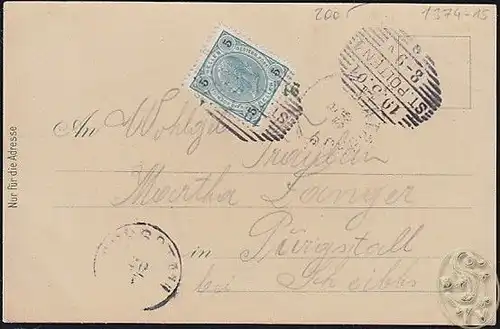 200
1374-15
5 5
5 5
ST. PÖLTEN 1
10.5.01
8-9V
Nur für die Adresse
An Wohlgeb
Fräulein
Martha Langer
in Purgstall
bei Scheibbs